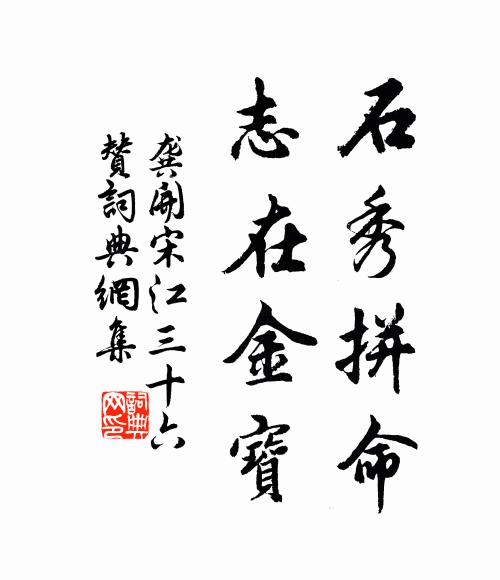 石秀拼命
志在金寶
龔開宋江三十六
贊詞典網集
詞典
网印